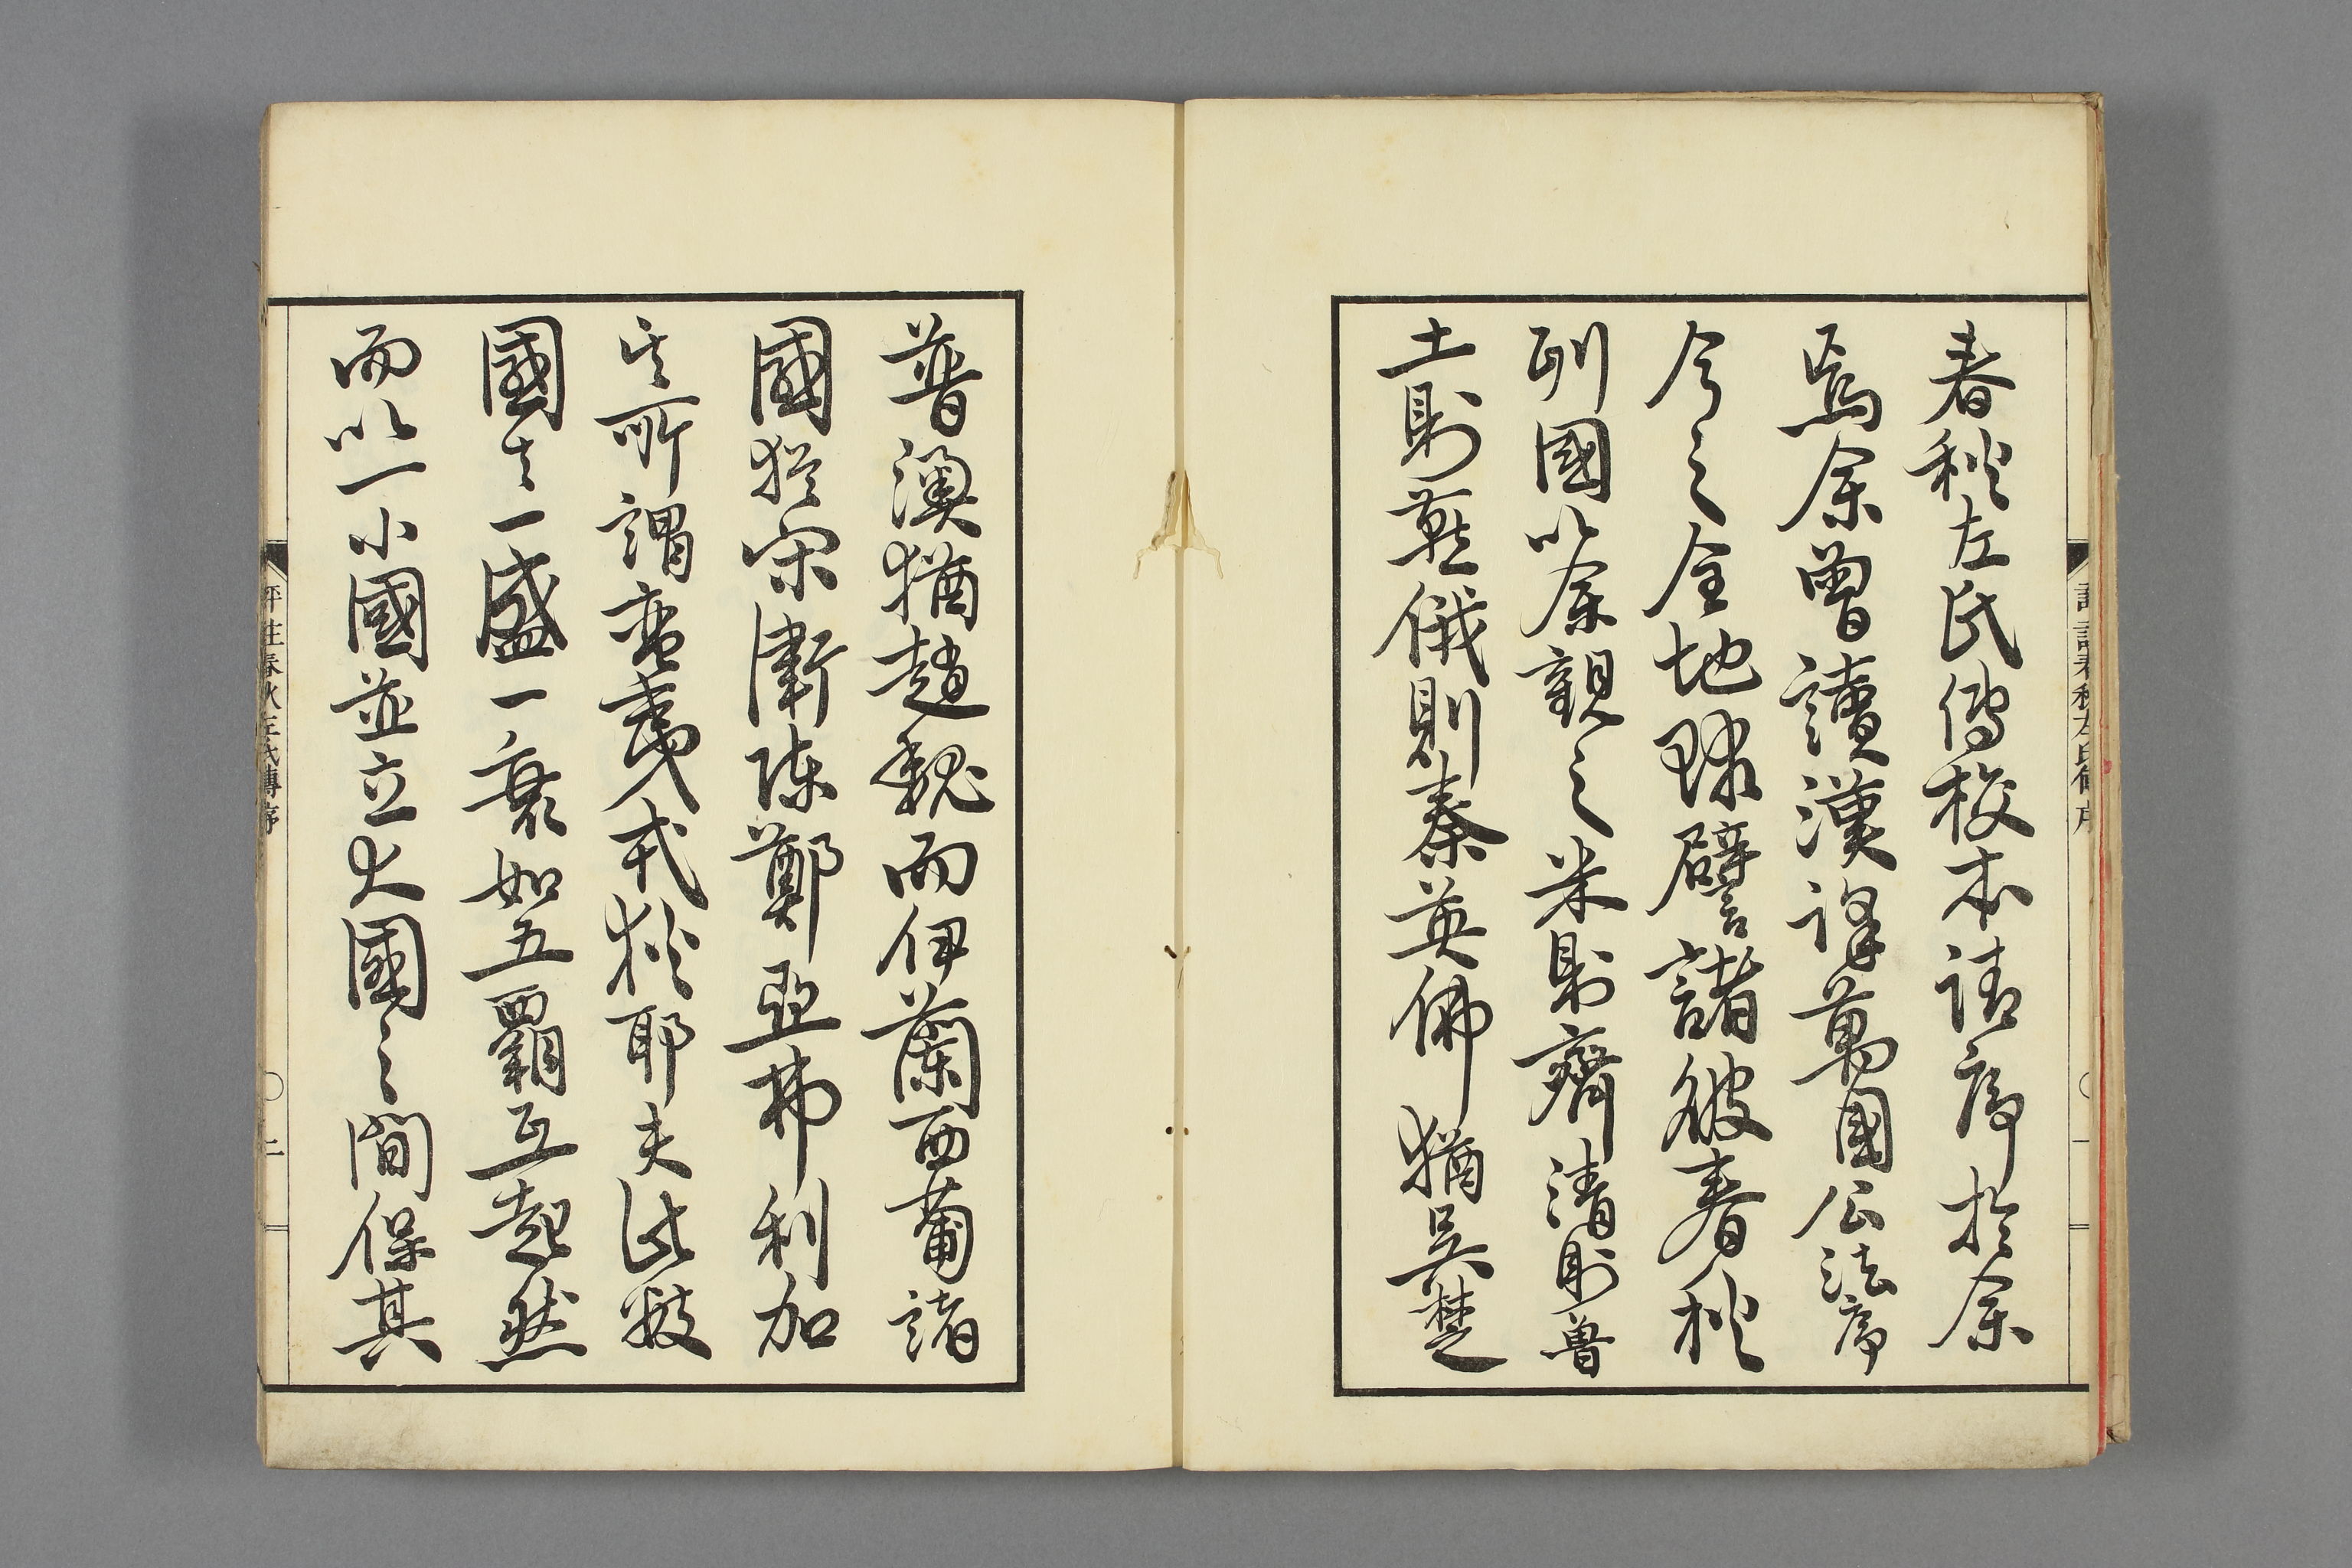 春秋左氏傳校本請序於余
焉余曾讀漢譯萬國公法序
今之全地球譬諸彼春秋
列國以余觀之米則齊清則魯
土則燕俄則秦英佛猶吳楚
普澳猶趙魏而伊蘭西葡諸
國猶宋衛陳鄭亞弗利加
其所謂蠻夷戎狄耶夫此數
國之一盛一衰如五霸互起然
而以一小國並立大國之間保其
評註春秋左氏傳序
一
評註春秋左氏傳序
二